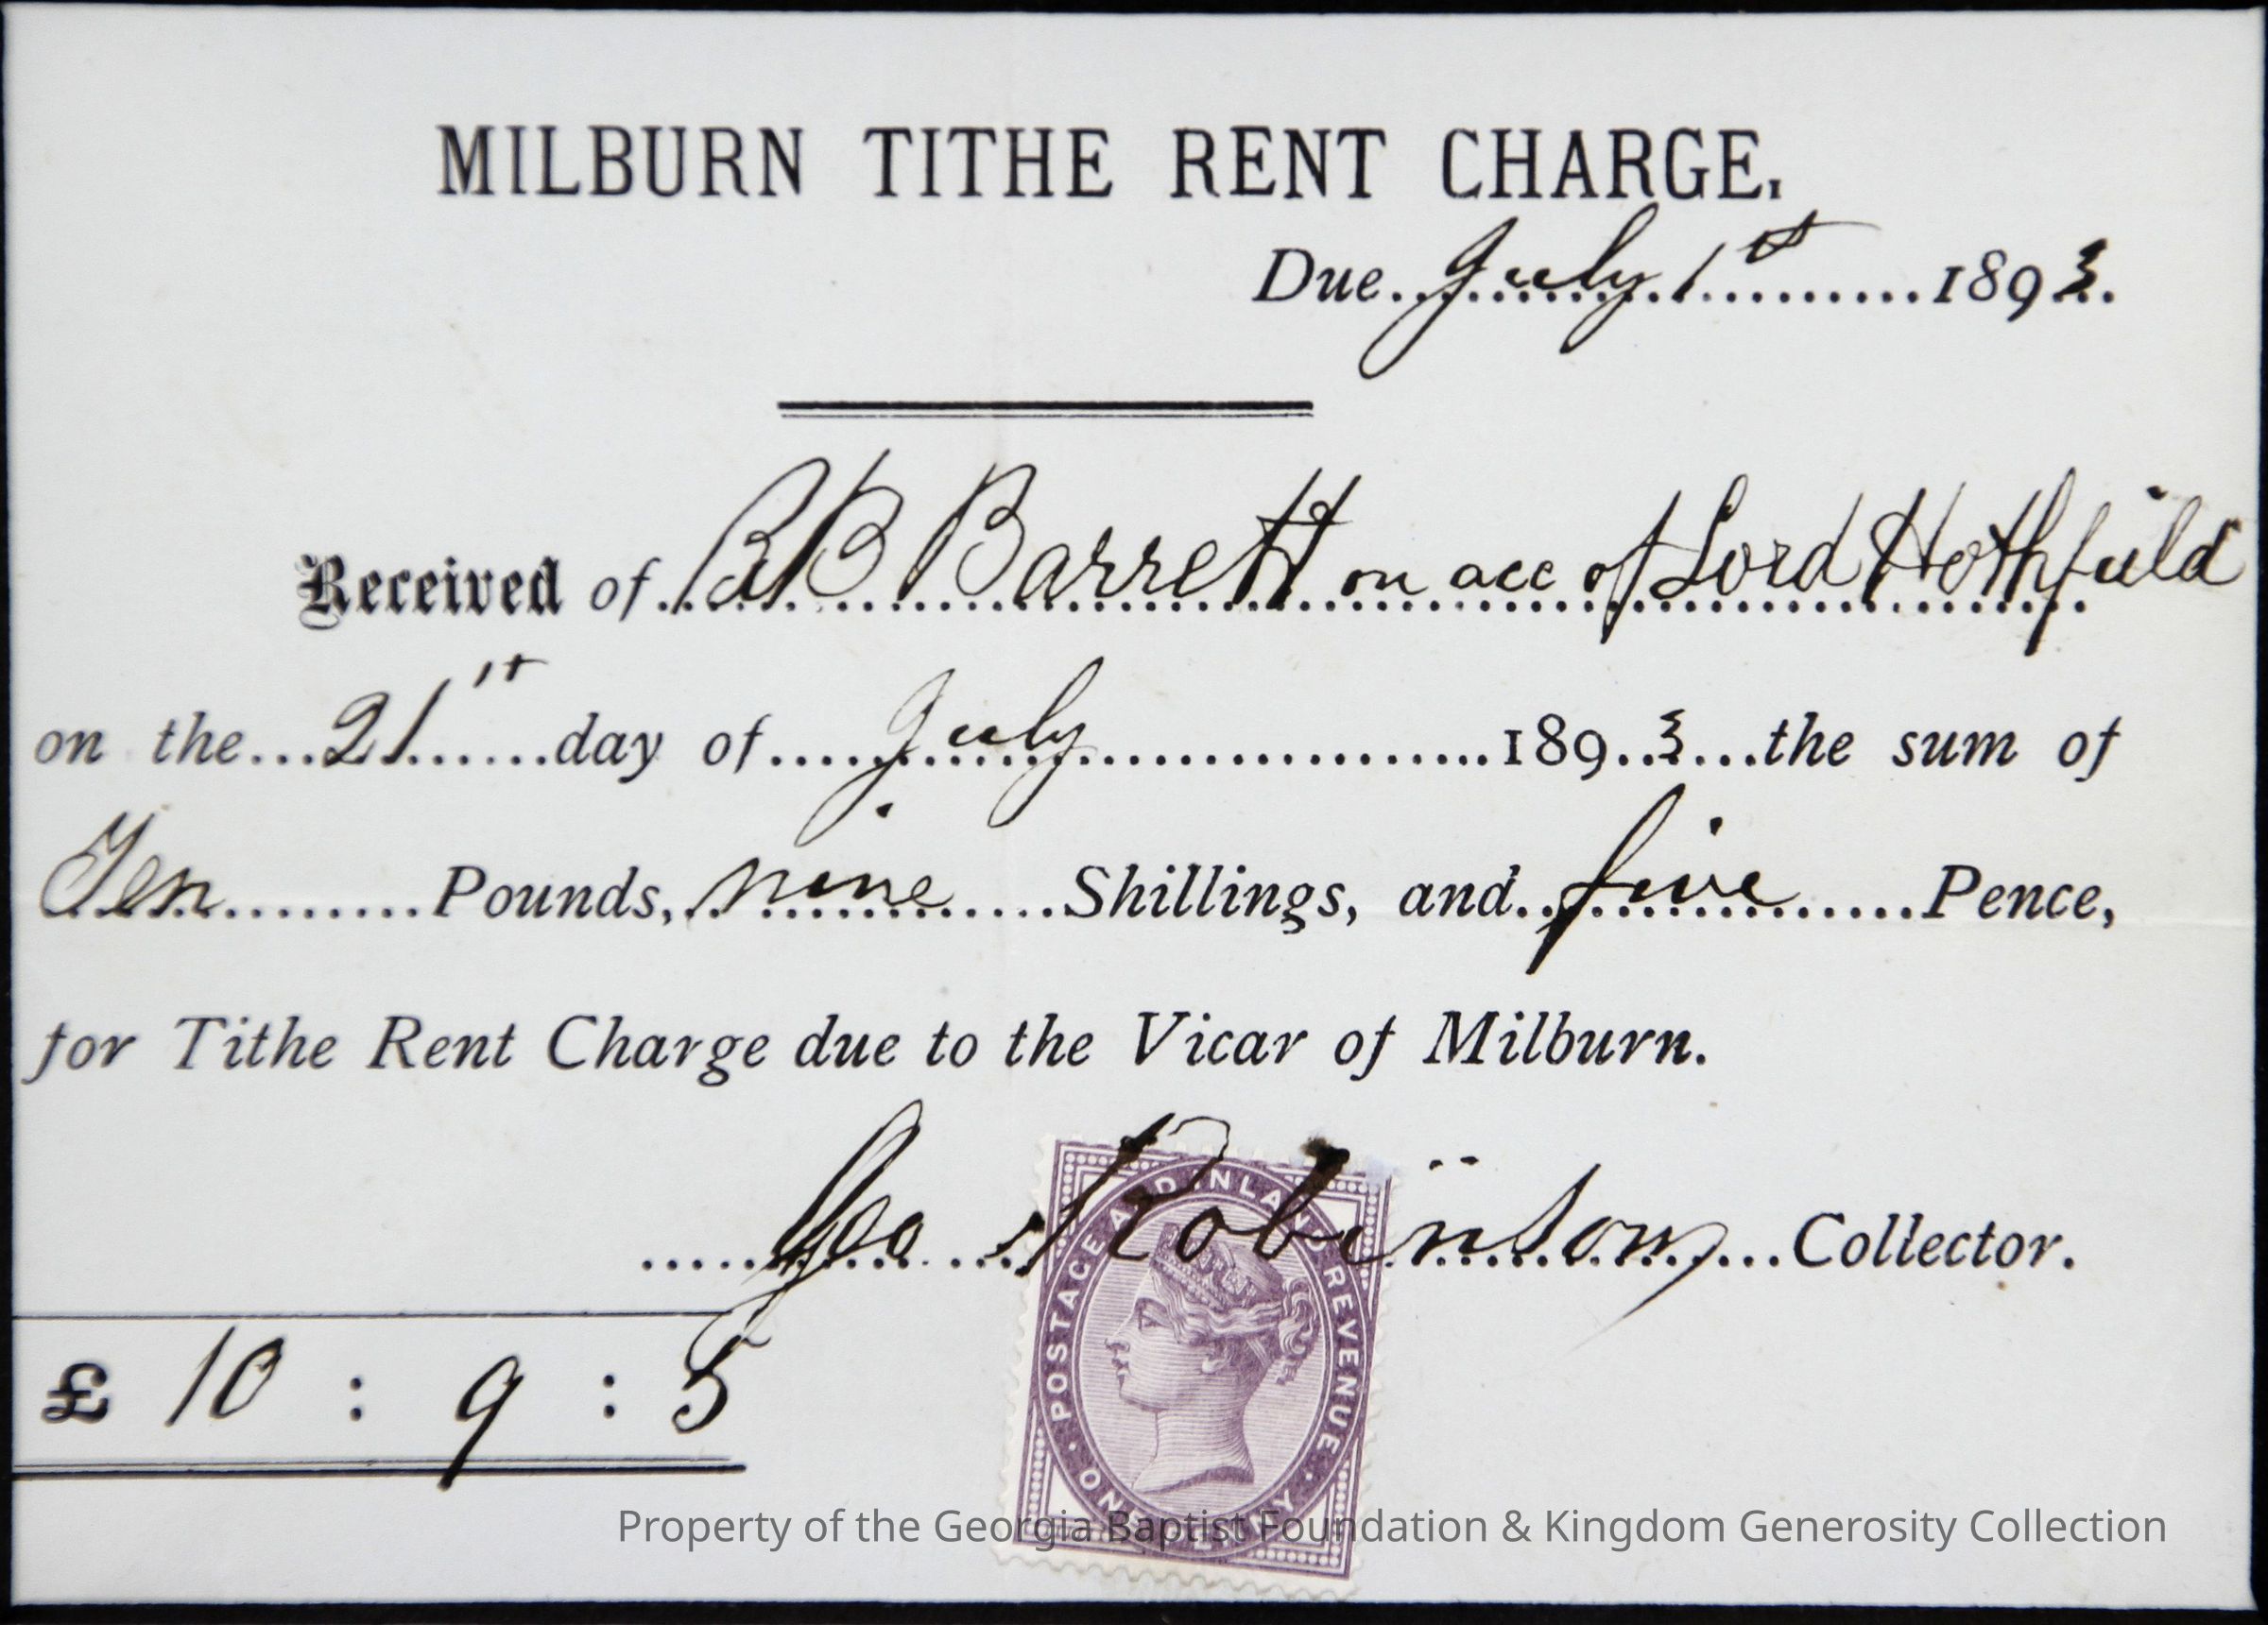 MILBURN TITHE RENT CHARGE.
Due July 1st 1893.
Received of RB Barrett on acc of Lord Hothfield
on the 21st day of July 1893 the sum of
Ten Pounds, nine Shillings, and five Pence,
for Tithe Rent Charge due to the Vicar of Milburn.
Geo Robinson Collector.
£ 10 : 9 : 5
POSTAGE AND INLAND REVENUE · ONE PENNY ·
Property of the Georgia Baptist Foundation & Kingdom Generosity Collection